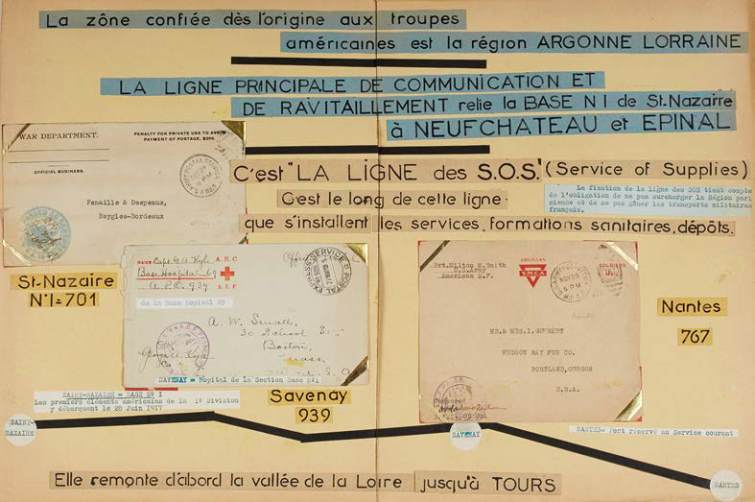 La zône confiée dès l'origine aux troupes
américaines est la région ARGONNE LORRAINE
LA LIGNE PRINCIPALE DE COMMUNICATION ET
DE RAVITAILLEMENT relie la BASE N1 de St.Nazaire
à NEUFCHATEAU et EPINAL
C'est "LA LIGNE des S.O.S." (Service of Supplies)
C'est le long de cette ligne
que s'installent les services, formations sanitaires, dépôts.
La fixation de la ligne des SOS tient compte
de l'obligation de ne pas surcharger la Région pari
sienne et de ne pas gêner les transports militaires
français.
WAR DEPARTMENT.
PENALTY FOR PRIVATE USE TO AVOID
PAYMENT OF POSTAGE, $300.
OFFICIAL BUSINESS.
Fenaille & Despeaux,
Baygles-Bordeaux
St-Nazaire
N°1=701
Capt. G W Kyle A.R.C.
Base Hospital 69
A.P.O. 939 A.E.F.
de la Base Hôpital 69
A. W. Small,
30 School St-
Boston,
Mass
U. S. A
SAVENAY = Hôpital de la Section Base N°1
Savenay
939
Pvt.Milton H.Smith
U.S.Army
American E.F.
Y.M.C.A
MR. & MRS. I.
HUDSON BAY FUR CO.
PORTLAND, OREGON
U.S.A.
Nantes
767
SAINT-NAZAIRE = BASE N° I
Les premiers éléments américains de la 1° Division
y débarquent le 26 Juin 1917
SAINT-
NAZAIRE
SAVENAY
NANTES= Port réservé au Service courant
NANTES
Elle remonte d'abord la vallée de la Loire jusqu'à TOURS